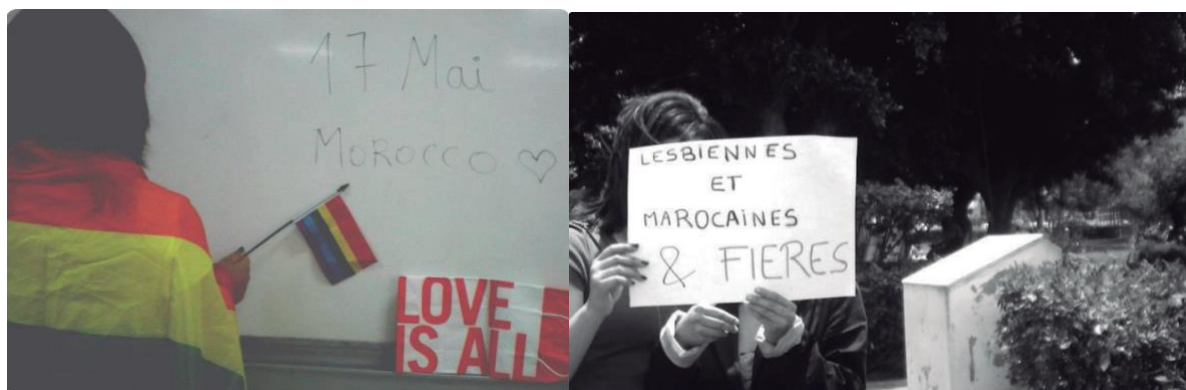 17 Mai
MOROCCO ♡
LOVE
IS ALL
LESBIENNES
ET
MAROCAINES
& FIERES